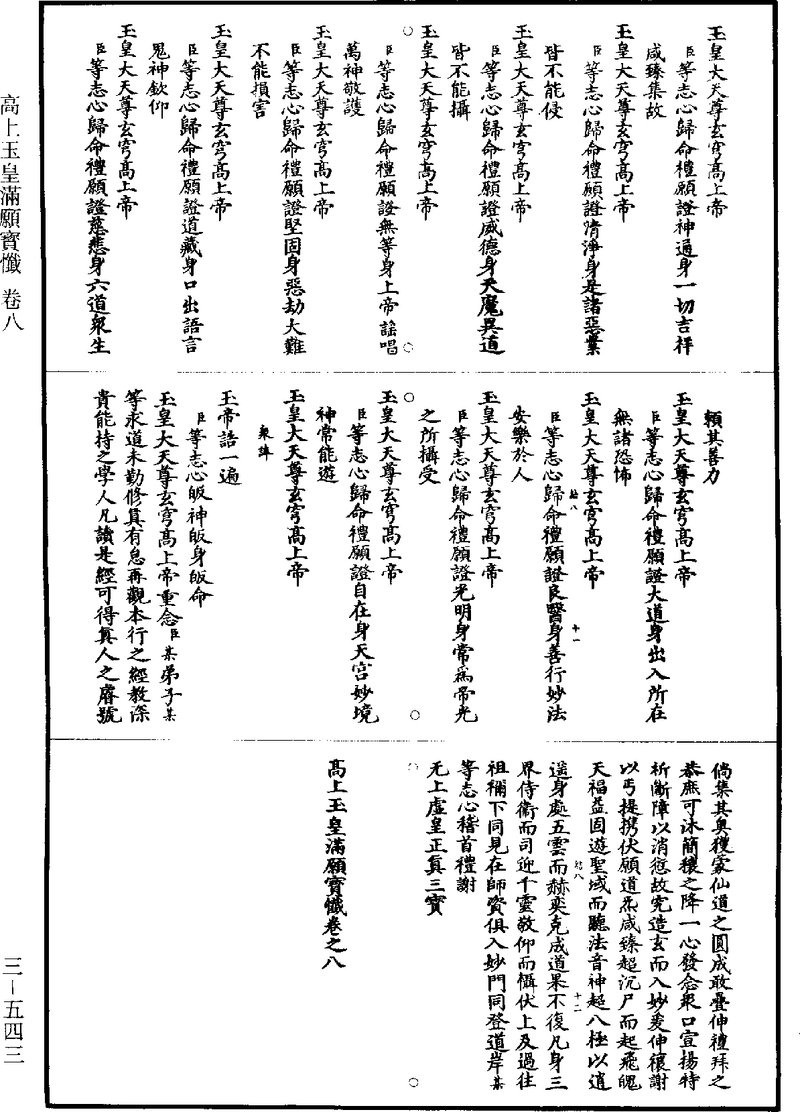 玉皇大天尊玄穹高上帝
臣等志心歸命禮願證神通身一切吉祥
咸臻集故
玉皇大天尊玄穹高上帝
臣等志心歸命禮願證清淨身是諸惡業
皆不能侵
玉皇大天尊玄穹高上帝
臣等志心歸命禮願證威德身天魔異道
皆不能攝
玉皇大天尊玄穹高上帝
臣等志心歸命禮願證無等身上帝謡唱
萬神敬護
玉皇大天尊玄穹高上帝
臣等志心歸命禮願證堅固身惡劫大難
不能損害
玉皇大天尊玄穹高上帝
臣等志心歸命禮願證道藏身口出語言
鬼神欽仰
玉皇大天尊玄穹高上帝
臣等志心歸命禮願證慈悲身六道衆生
賴其善力
玉皇大天尊玄穹高上帝
臣等志心歸命禮願證大道身出入所在
無諸恐怖
玉皇大天尊玄穹高上帝
八
十一
臣等志心歸命禮願證良醫身善行妙法
安樂於人
玉皇大天尊玄穹高上帝
臣等志心歸命禮願證光明身常爲帝光
之所攝受
玉皇大天尊玄穹高上帝
臣等志心歸命禮願證自在身天宫妙境
神常能遊
玉皇大天尊玄穹高上帝
衆諱
玉帝誥一遍
臣等志心皈神皈身皈命
玉皇大天尊玄穹高上帝重念臣某弟子某
等求道未勤修真有怠再觀本行之經教深
貴能持之學人凡讀是經可得真人之膺號
倘集其奥獲蒙仙道之圓成敢疊伸禮拜之
恭庶可沐簡穰之降一心發念衆口宣揚特
祈斷障以消愆故究造玄而入妙爰伸懷謝
以丐提携伏願道炁咸臻超沉尸而起飛魄
天福益固遊聖域而聽法音神超八極以逍
八
十二
遥身處五雲而赫奕克成道果不復凡身三
界侍衛而司迎千靈敬仰而懾伏上及過往
祖禰下同見在師資俱入妙門同登道岸某
等志心稽首禮謝
无上虚皇正真三寶
高上玉皇滿願寳懺卷之八
高上玉皇滿願寳懺 卷八
三－五四三